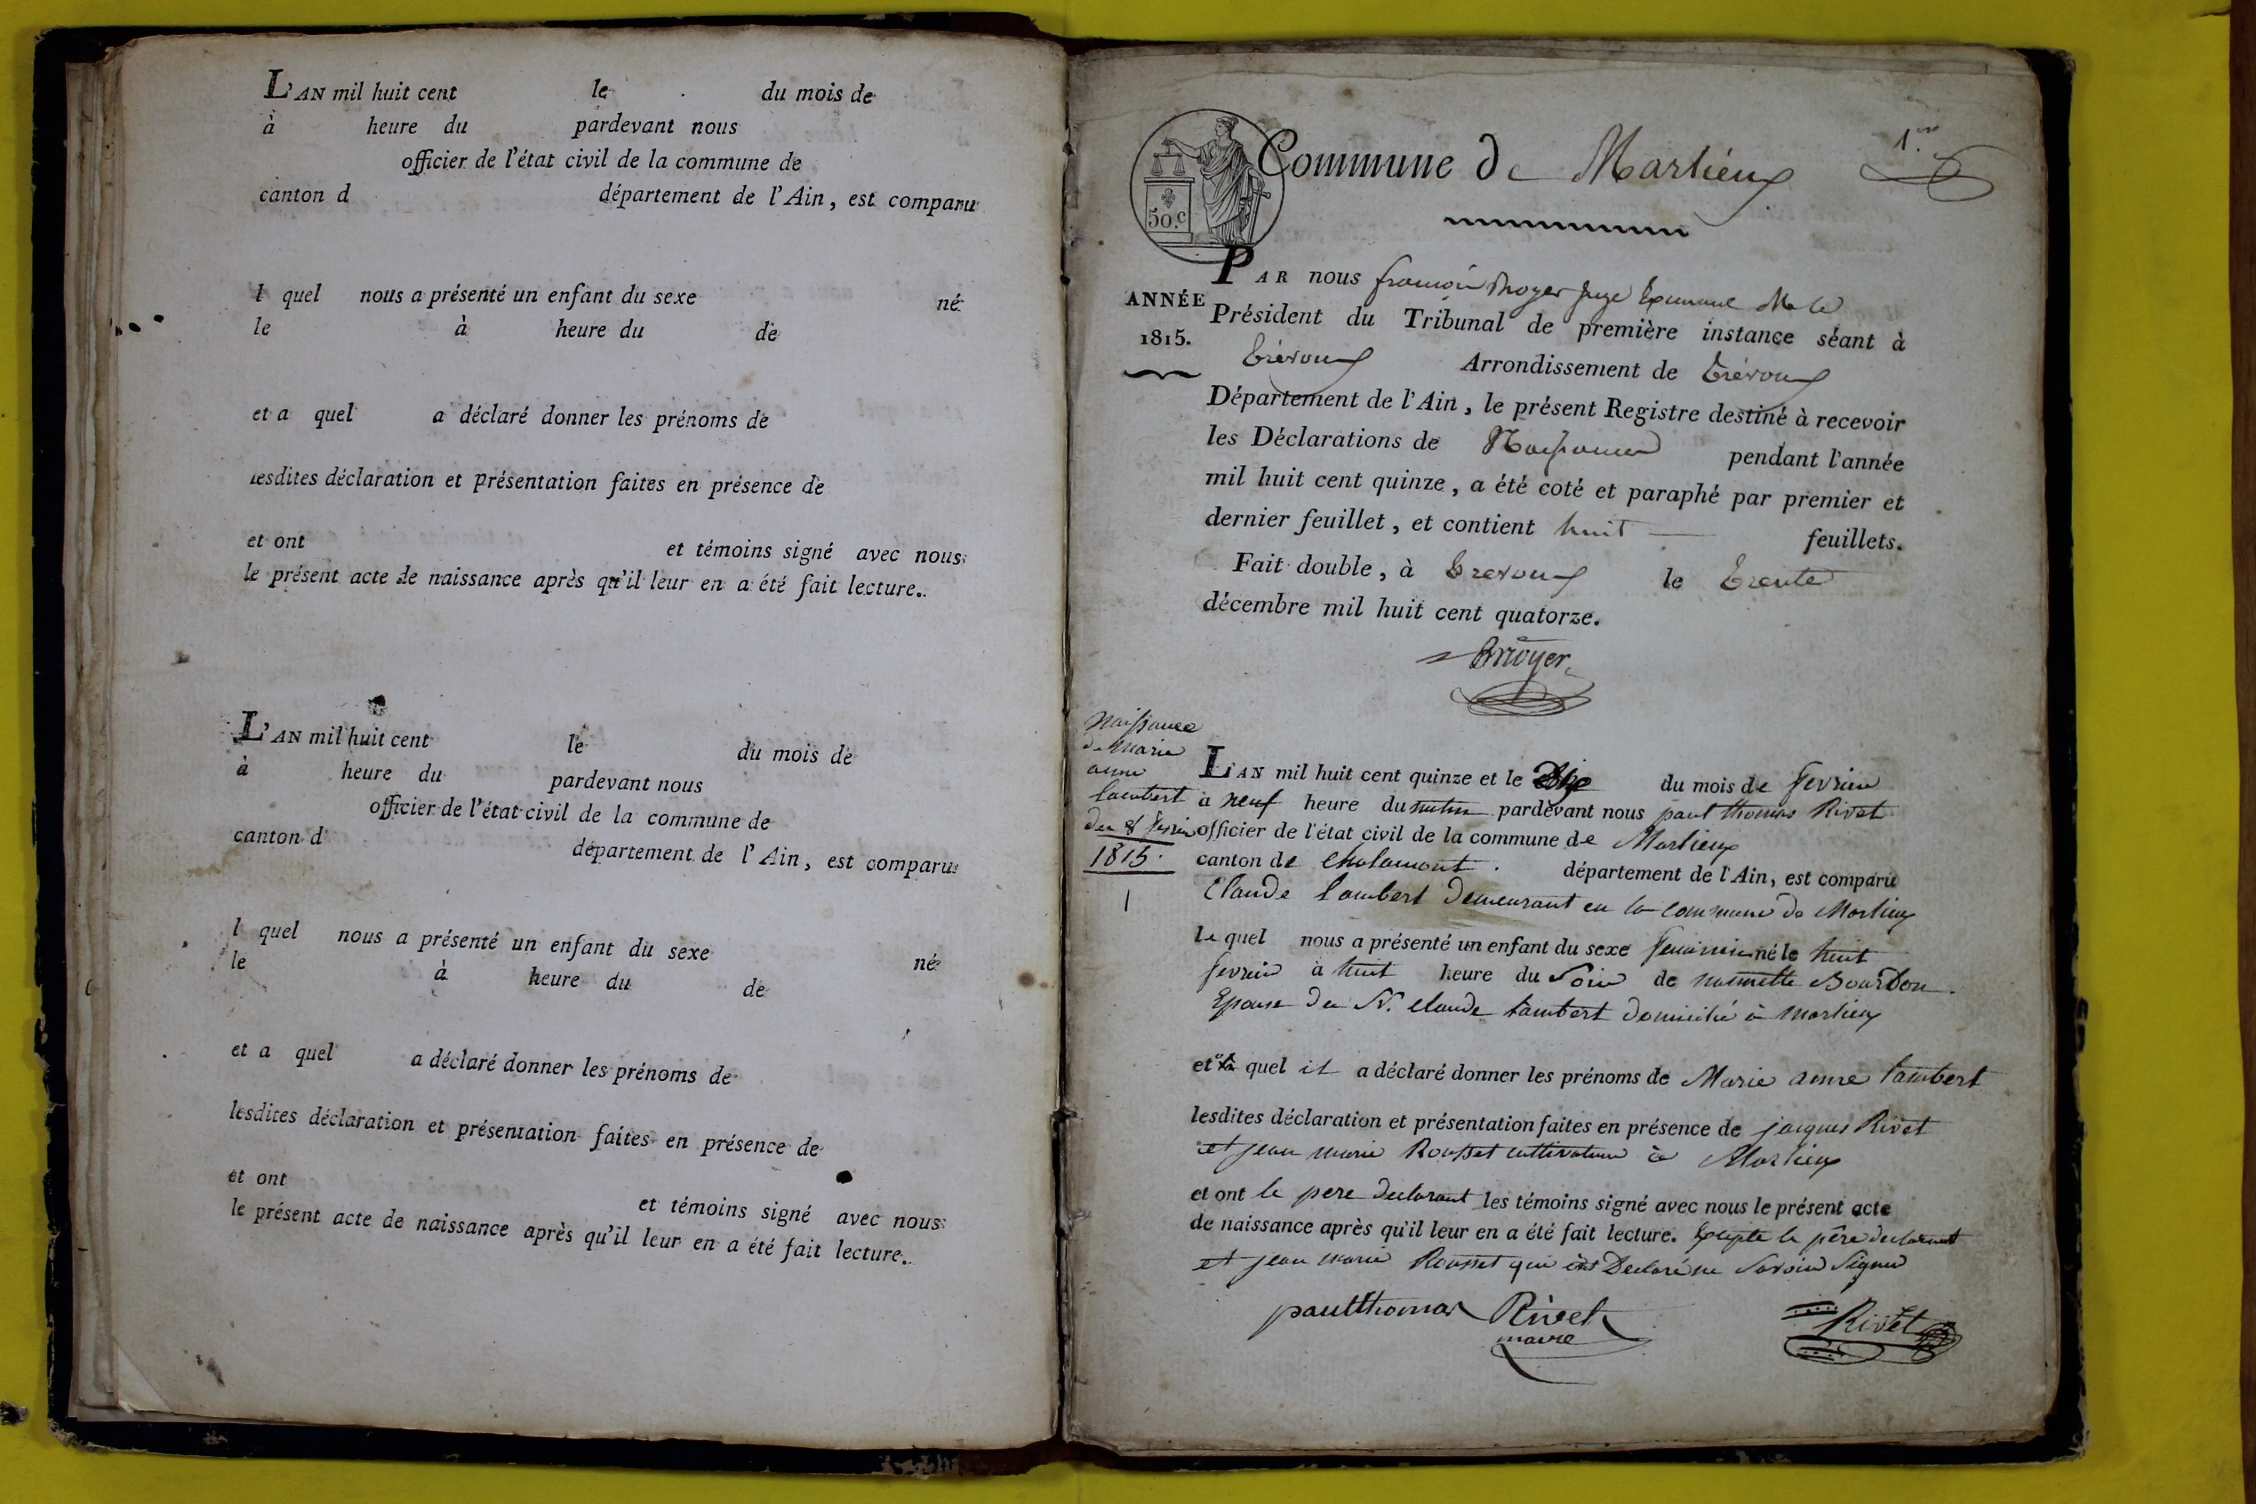 L'AN mil huit cent le du mois de
à heure du pardevant nous
officier de l'état civil de la commune de
canton d département de l'Ain, est comparu
l quel nous a présenté un enfant du sexe né
le à heure du de
et a quel a déclaré donner les prénoms de
lesdites déclaration et présentation faites en présence de
et ont et témoins signé avec nous
le présent acte de naissance après qu'il leur en a été fait lecture.
L'AN mil huit cent le du mois de
à heure du pardevant nous
officier de l'état civil de la commune de
canton d département de l'Ain, est comparu
l quel nous a présenté un enfant du sexe né
le à heure du de
et a quel a déclaré donner les prénoms de
lesdites déclaration et présentation faites en présence de
et ont et témoins signé avec nous
le présent acte de naissance après qu'il leur en a été fait lecture.
50.c
Commune de Marlieux
ANNÉE
1815.
PAR nous françois juge
Président du Tribunal de première instance séant à
trévoux Arrondissement de trévoux
Département de l'Ain, le présent Registre destiné à recevoir
les Déclarations de Naissances pendant l'année
mil huit cent quinze, a été coté et paraphé par premier et
dernier feuillet, et contient huit feuillets.
Fait double, à trevoux le trente
décembre mil huit cent quatorze.
Naissance
de Marie
anne
lambert
du 8 fevrier
1815.
1
L'AN mil huit cent quinze et le dix du mois de fevrier
à neuf heure du matin pardevant nous paul thomas Rivet
officier de l'état civil de la commune de Marlieux
canton de chalamont. département de l'Ain, est comparu
Claude lambert demeurant en la commune de Marlieux
le quel nous a présenté un enfant du sexe feminin né le huit
fevrier à huit heure du Soir de Bourdon.
Epouse du Sr. claude lambert domicilié à marlieux
et à quel il a déclaré donner les prénoms de Marie anne lambert
lesdites déclaration et présentation faites en présence de jacques Rivet
et jean marie Rousset cultivateur à Marlieux
et ont le pere declarant les témoins signé avec nous le présent acte
de naissance après qu'il leur en a été fait lecture. Excepte le père declarant
et jean marie Rousset qui ont Declaré ne Savoir Signer
paul thomas Rivet
maire
Rivet